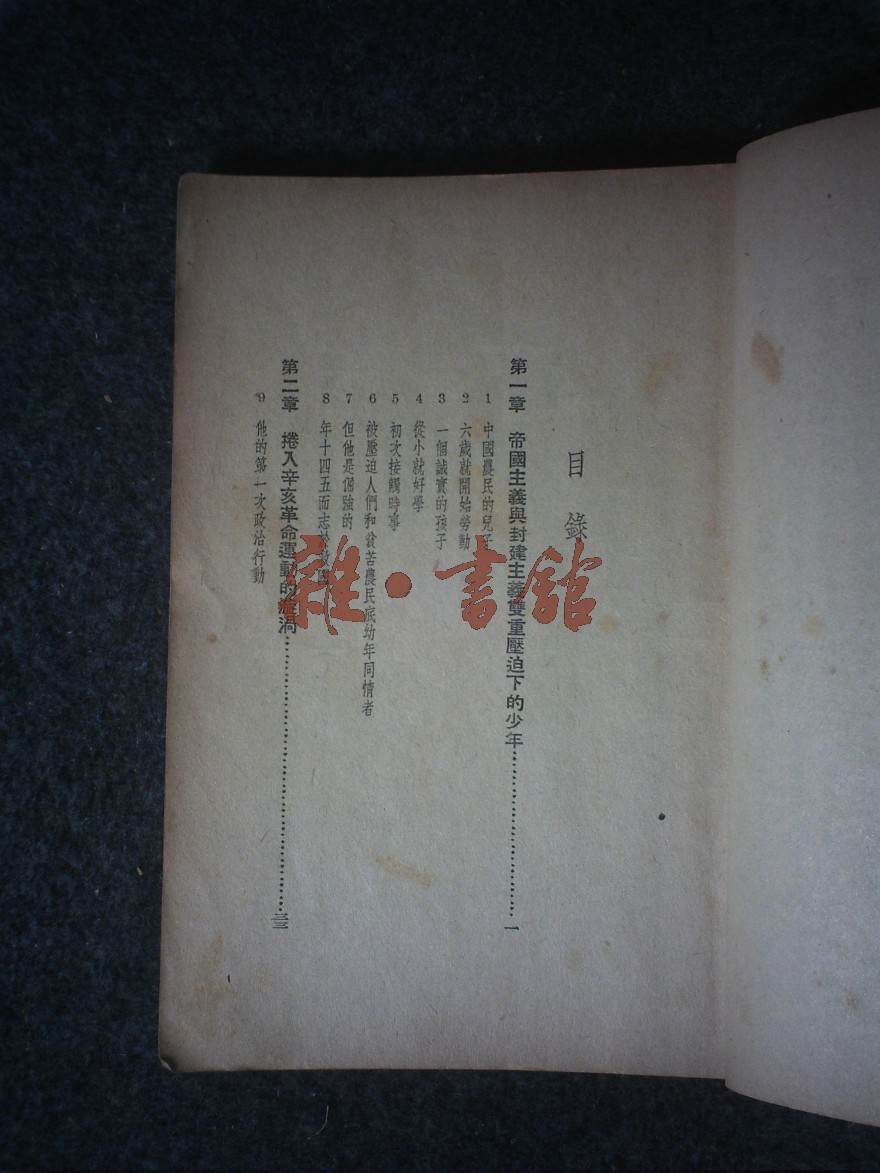 目錄
第一章 帝國主義與封建主義雙重壓迫下的少年……………………一
1 中國農民的兒子
2 六歲就開始勞動
3 一個誠實的孩子
4 從小就好學
5 初次接觸時事
6 被壓迫人們和貧苦農民底幼年同情者
7 但他是倔強的
8 年十四五而志於救國
第二章 捲入辛亥革命運動的漩渦……………………三三
9 他的第一次政治行動
雜·書館